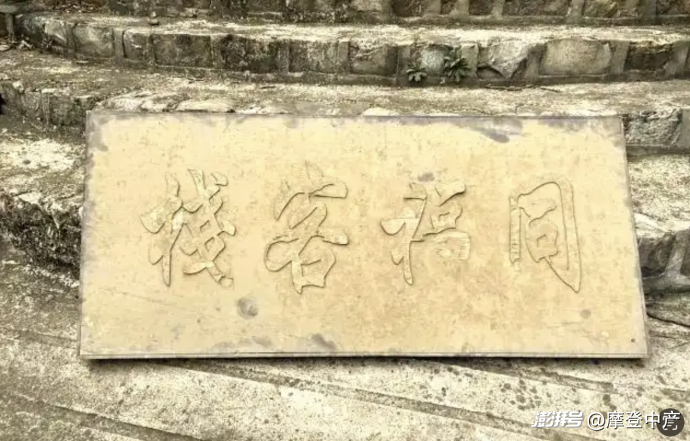 同福客棧
澎湃号 @摩登中产